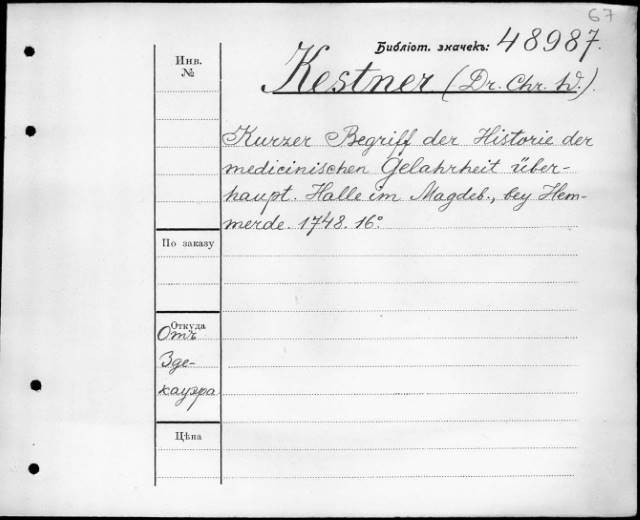 67
Библіот. значекъ: 48987.
Инв.
№
Kestner (Dr. Chr. W.).
Kurzer Begriff der Historie der
medicinischen Gelahrheit über-
haupt. Halle im Magdeb., bey Hem-
merde. 1748. 16°
По заказу
Откуда
Отъ
Зде-
кауэра
Цѣна